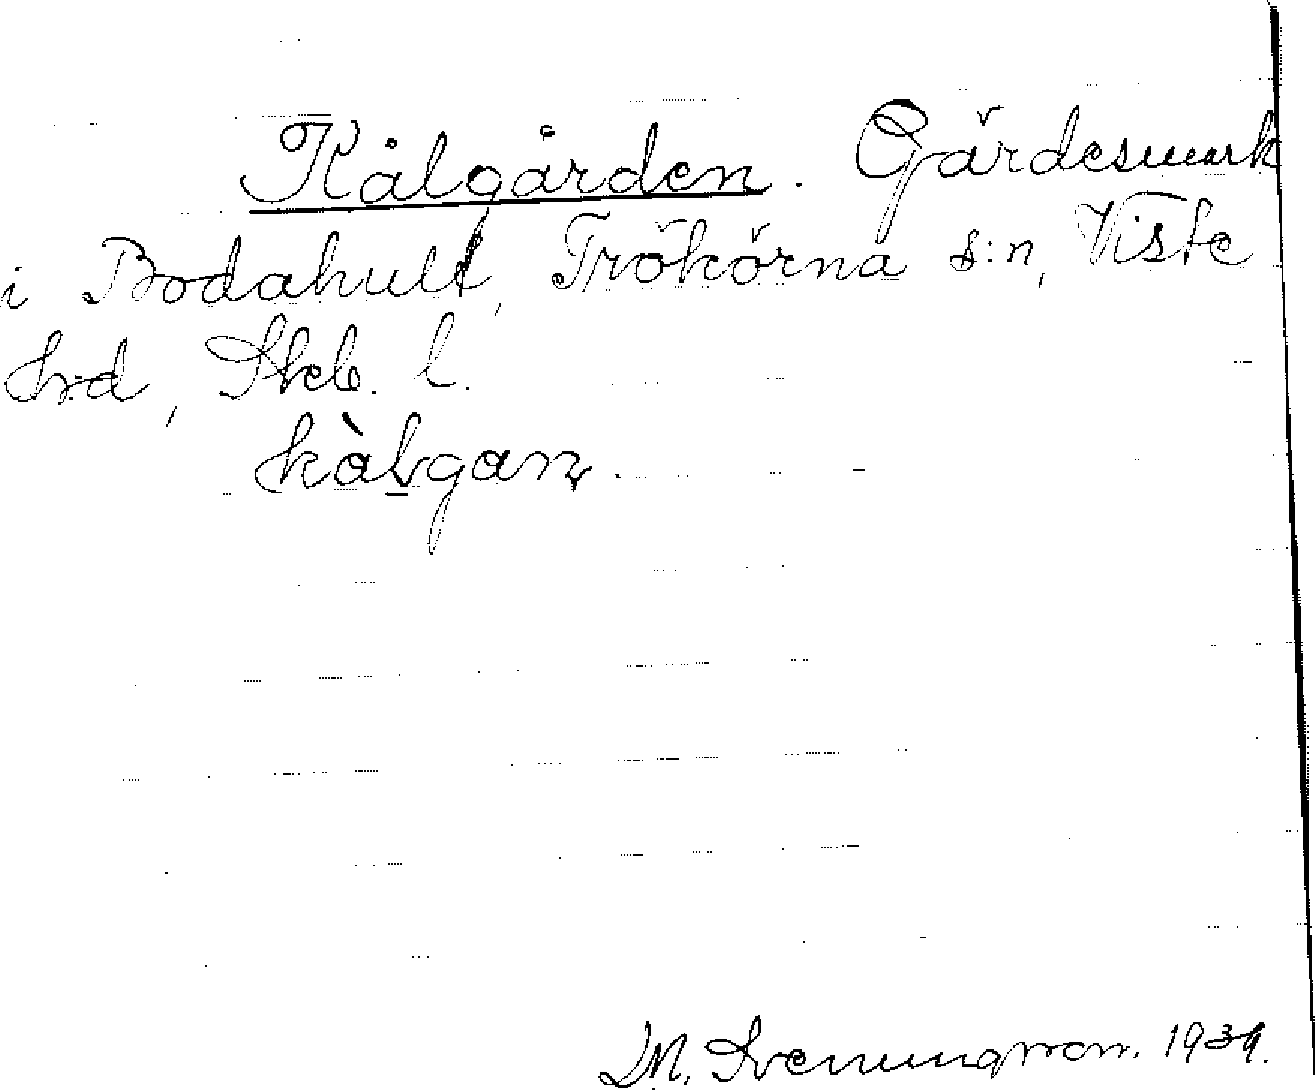 Kålgården. Gärdesmark
i Bodahult, Trökörna s:n, Viste
hrd, Skb. l.
kàḻgan.
M. Svenungsson. 1934.